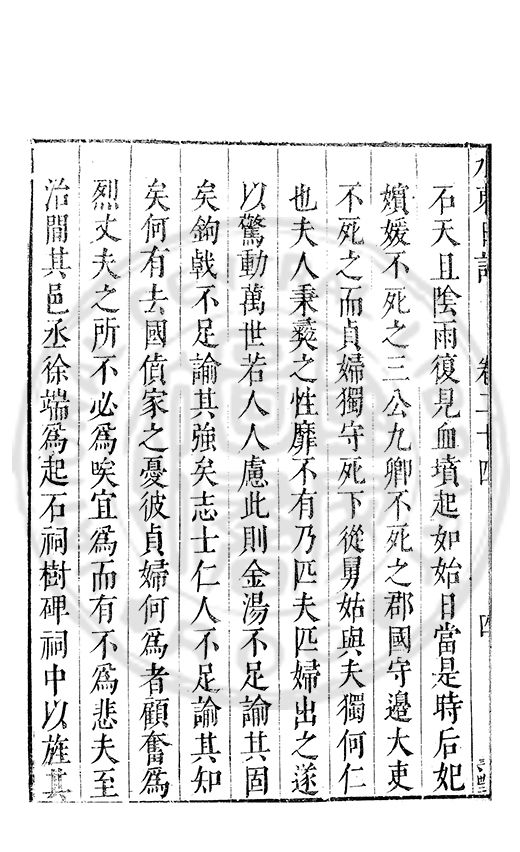 水東日記 卷二十四 四
石天且陰雨復見血墳起如始日當是時后妃
嬪媛不死之三公九卿不死之郡國守邊大吏
不死之而貞婦獨守死下從舅姑與夫獨何仁
也夫人秉彝之性靡不有乃匹夫匹婦出之遂
以驚動萬世若人人慮此則金湯不足諭其固
矣鉤戟不足諭其強矣志士仁人不足諭其知
矣何有去國僨家之憂彼貞婦何爲者顧奮爲
烈丈夫之所不必爲唉宜爲而有不爲悲夫至
治間其邑丞徐端爲起石祠樹碑祠中以旌其